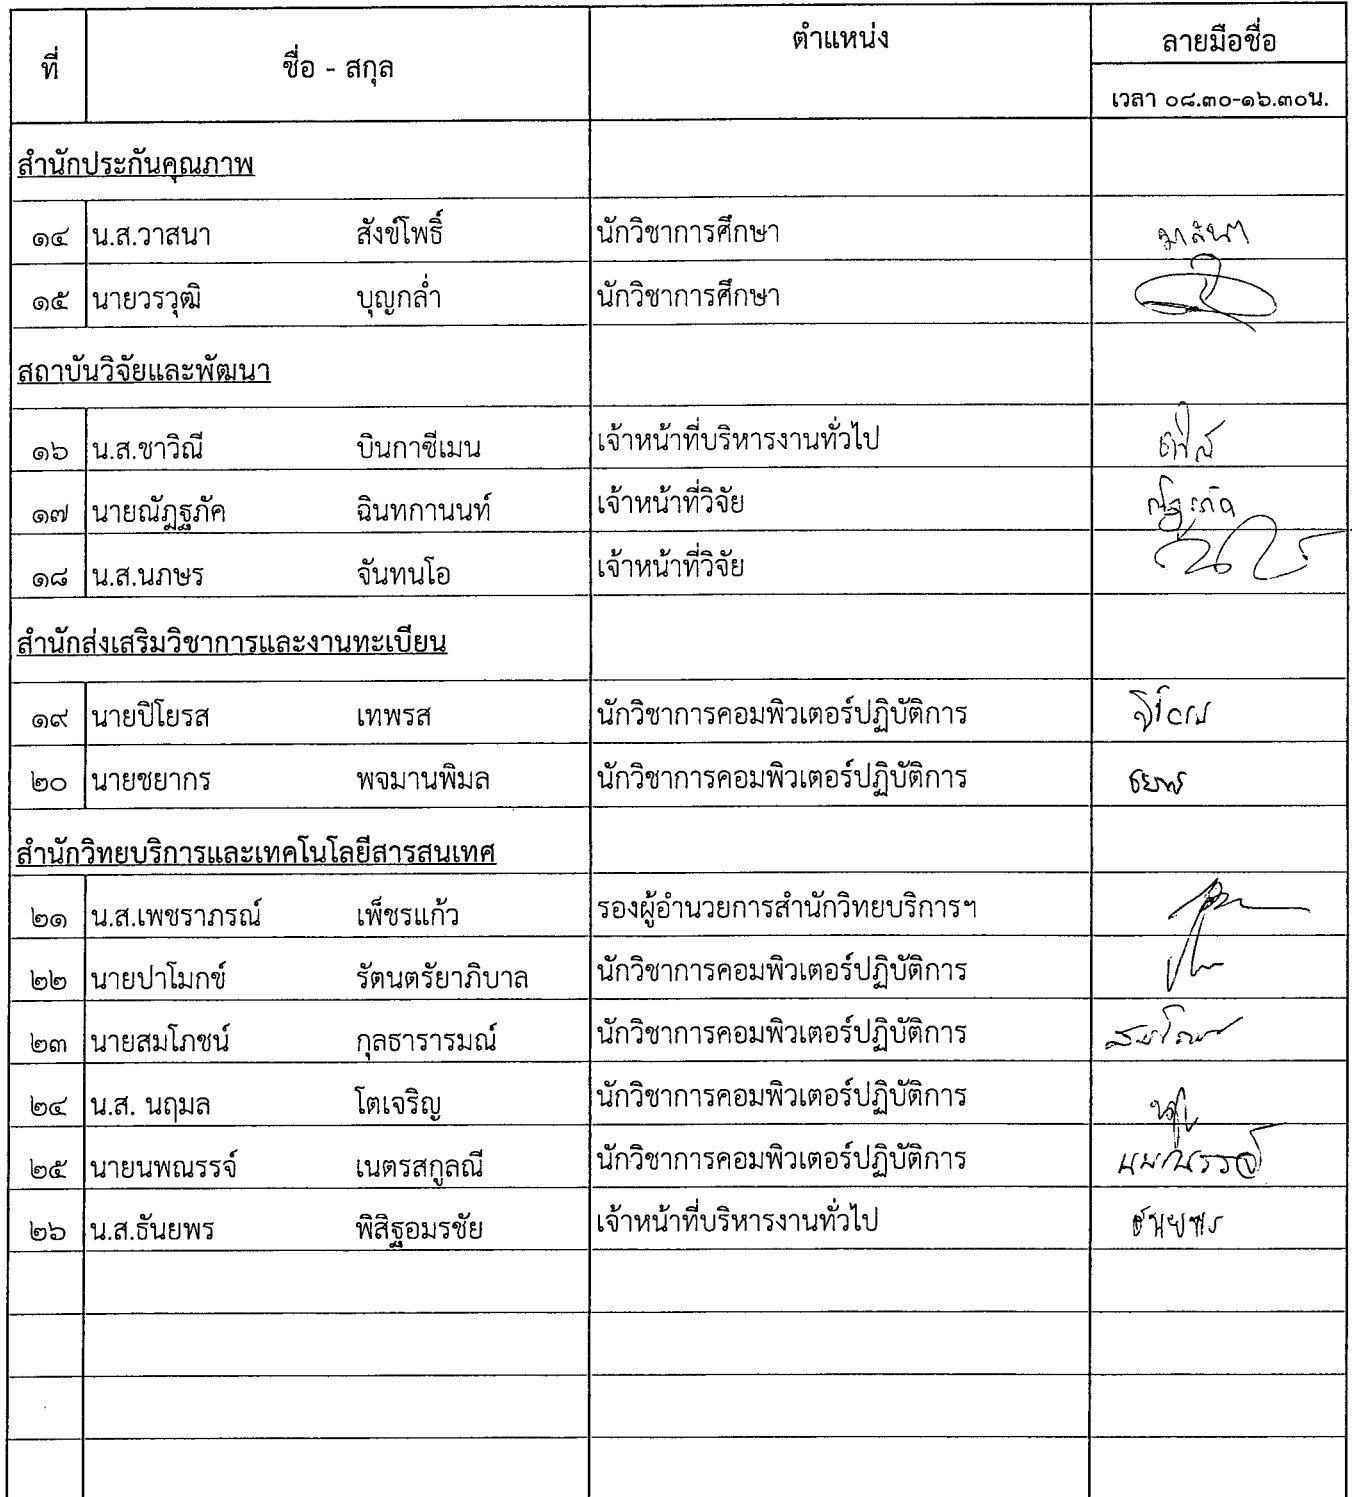 ที่ ชื่อ - สกุล ตำแหน่ง ลายมือชื่อ
เวลา ๐๘.๓๐-๑๖.๓๐น.
สำนักประกันคุณภาพ
๑๔ น.ส.วาสนา สังข์โพธิ์ นักวิชาการศึกษา วาสนา
๑๕ นายวรวุฒิ บุญกล่ำ นักวิชาการศึกษา
สถาบันวิจัยและพัฒนา
๑๖ น.ส.ชาวิณี บินกาซีเมน เจ้าหน้าที่บริหารงานทั่วไป
๑๗ นายณัฎฐภัค ฉินทกานนท์ เจ้าหน้าที่วิจัย
๑๘ น.ส.นภษร จันทนโอ เจ้าหน้าที่วิจัย
สำนักส่งเสริมวิชาการและงานทะเบียน
๑๙ นายปิโยรส เทพรส นักวิชาการคอมพิวเตอร์ปฏิบัติการ
๒๐ นายชยากร พจมานพิมล นักวิชาการคอมพิวเตอร์ปฏิบัติการ
สำนักวิทยบริการและเทคโนโลยีสารสนเทศ
๒๑ น.ส.เพชราภรณ์ เพ็ชรแก้ว รองผู้อำนวยการสำนักวิทยบริการฯ
๒๒ นายปาโมกข์ รัตนตรัยาภิบาล นักวิชาการคอมพิวเตอร์ปฏิบัติการ
๒๓ นายสมโภชน์ กุลธารารมณ์ นักวิชาการคอมพิวเตอร์ปฏิบัติการ
๒๔ น.ส. นฤมล โตเจริญ นักวิชาการคอมพิวเตอร์ปฏิบัติการ
๒๕ นายนพณรรจ์ เนตรสกูลณี นักวิชาการคอมพิวเตอร์ปฏิบัติการ
๒๖ น.ส.ธันยพร พิสิฐอมรชัย เจ้าหน้าที่บริหารงานทั่วไป ธันยพร